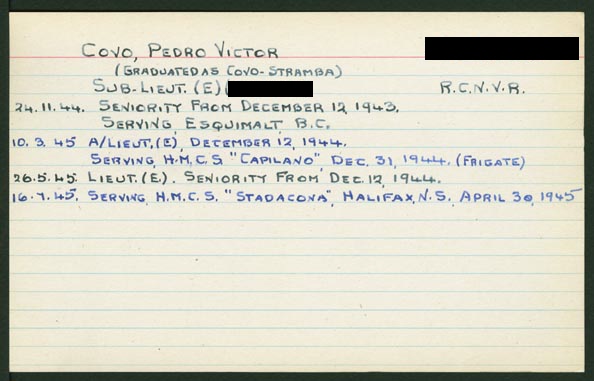 COVO, PEDRO VICTOR
(GRADUATED AS COVO-STRAMBA)
SUB-LIEUT. (E) ( R.C.N.V.R.
24.11.44. SENIORITY FROM DECEMBER 12, 1943.
SERVING, ESQUIMALT, B.C.
10.3.45 A/LIEUT, (E), DECEMBER 12, 1944.
SERVING, H.M.C.S. "CAPILANO" DEC. 31, 1944. (FRIGATE)
26.5.45. LIEUT. (E.). SENIORITY FROM DEC. 12, 1944.
16.7.45. SERVING, H.M.C.S. "STADACONA", HALIFAX, N.S., APRIL 30, 1945